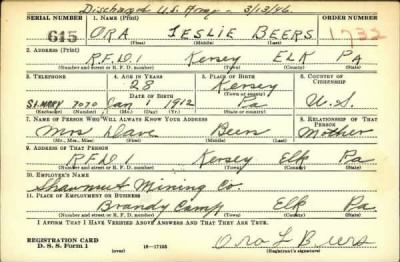 Discharged U.S. Army - 3/13/46
SERIAL NUMBER 1. NAME (Print) ORDER NUMBER
615 ORA LESLIE BEERS 1732
(First) (Middle) (Last)
2. ADDRESS (Print)
R.F.D. 1 Kersey ELK PA
(Number and street or R. F. D. number) (Town) (County) (State)
3. TELEPHONE 4. AGE IN YEARS 5. PLACE OF BIRTH 6. COUNTRY OF CITIZENSHIP
28 Kersey
(Town or county)
DATE OF BIRTH
St. Mary 7070 Jan 1 1912 Pa U.S.
(Exchange) (Number) (Mo.) (Day) (Yr.) (State or country)
7. NAME OF PERSON WHO WILL ALWAYS KNOW YOUR ADDRESS 8. RELATIONSHIP OF THAT PERSON
Mrs Dave Beers Mother
(Mr., Mrs., Miss) (First) (Middle) (Last)
9. ADDRESS OF THAT PERSON
R.F.D. 1 Kersey Elk Pa
(Number and street or R. F. D. number) (Town) (County) (State)
10. EMPLOYER'S NAME
Shawmut Mining Co.
11. PLACE OF EMPLOYMENT OR BUSINESS
Brandy Camp Elk Pa
(Number and street or R. F. D. number) (Town) (County) (State)
I AFFIRM THAT I HAVE VERIFIED ABOVE ANSWERS AND THAT THEY ARE TRUE.
REGISTRATION CARD
D. S. S. Form 1 (over) 16—17105 Ora L Beers
(Registrant's signature)